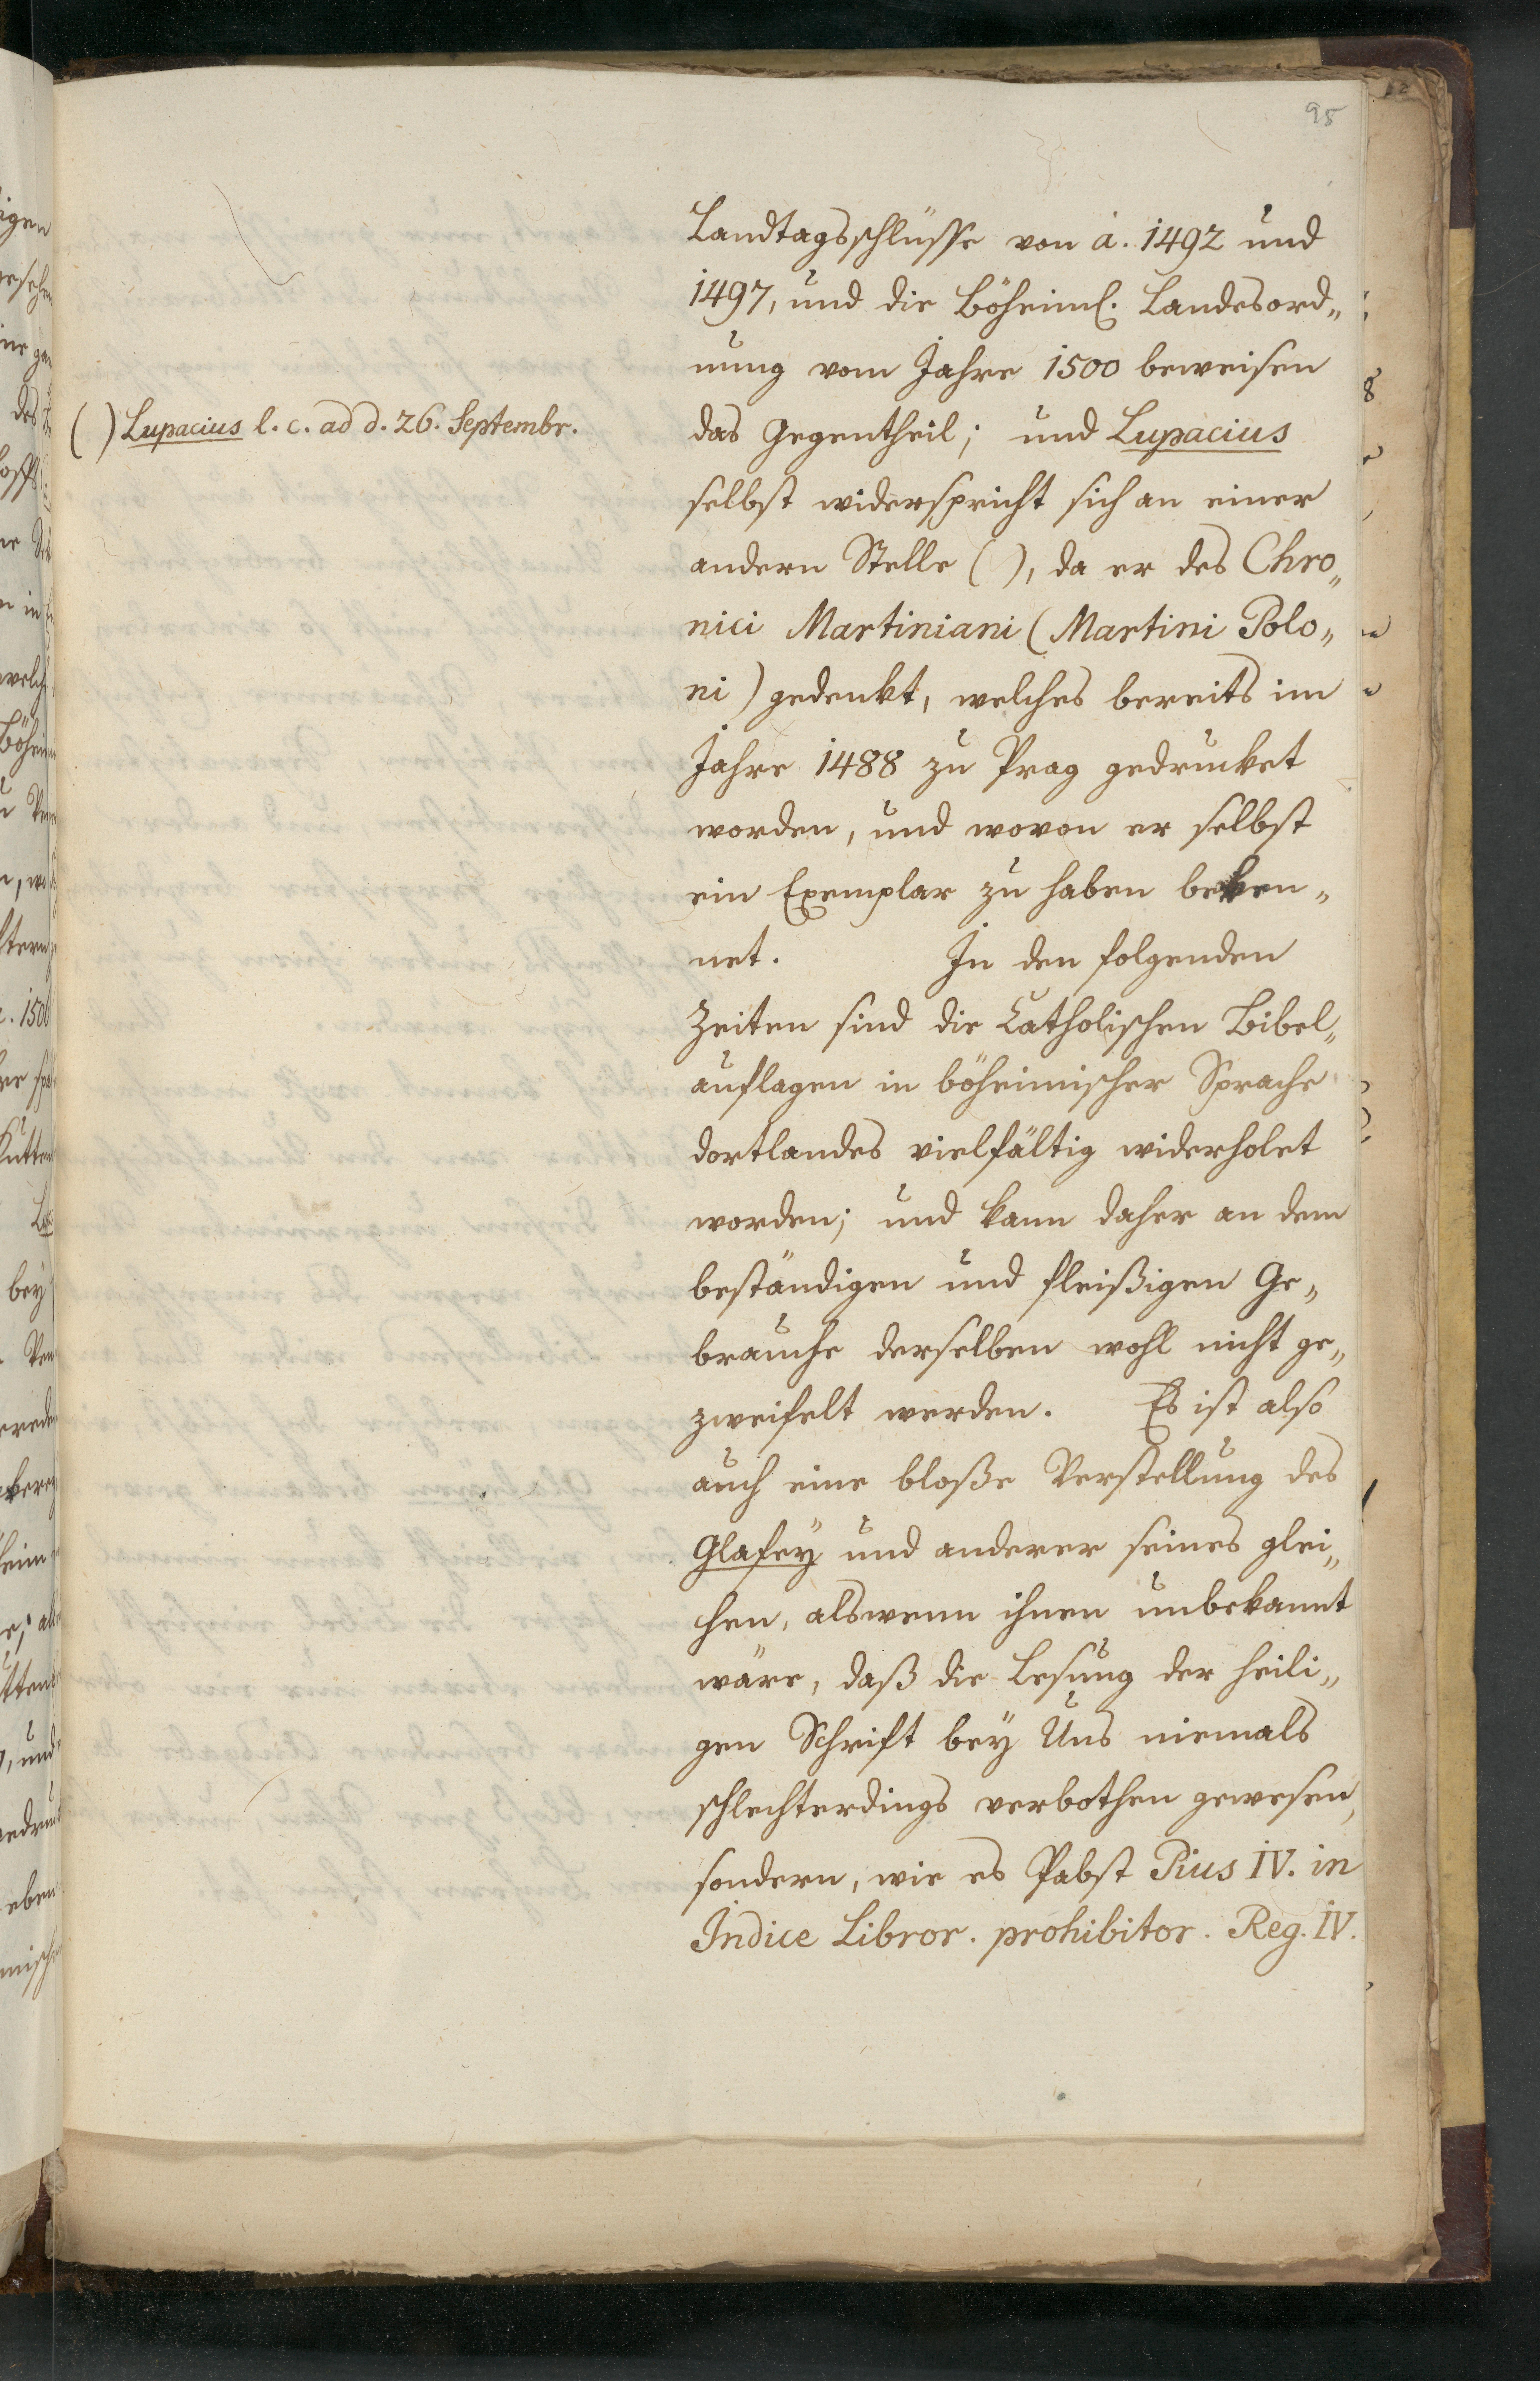 95
Landtagsschlüsse von a. 1492 und
1497, und die Böheiml. Landesord„
nung vom Jahre 1500 beweisen
das Gegentheil; und Lupacius
selbst widerspricht sich an einer
andern Stelle ( ), da er des Chro„
nici Martiniani (Martini Polo„
ni) gedenkt, welches bereits im
Jahre 1488 zu Prag gedrucket
worden, und wovon er selbst
ein Exemplar zu haben beken„
net. In den folgenden
Zeiten sind die Catholischen Bibel„
auflagen in böheimischer Sprache
dortlandes vielfältig widerholet
worden; und kann daher an dem
beständigen und fleißigen Ge„
brauche derselben wohl nicht ge„
zweifelt werden. Es ist also
auch eine bloße Verstellung des
Glafey und anderer seines glei„
chen, alswenn ihnen unbekannt
wäre, daß die Lesung der heili„
gen Schrift bey Uns niemals
schlechterdings verbothen gewesen,
sondern, wie es Pabst Pius IV. in
Indice Libror. prohibitor. Reg. IV.
( ) Lupacius l. c. ad d. 26. Septembr.